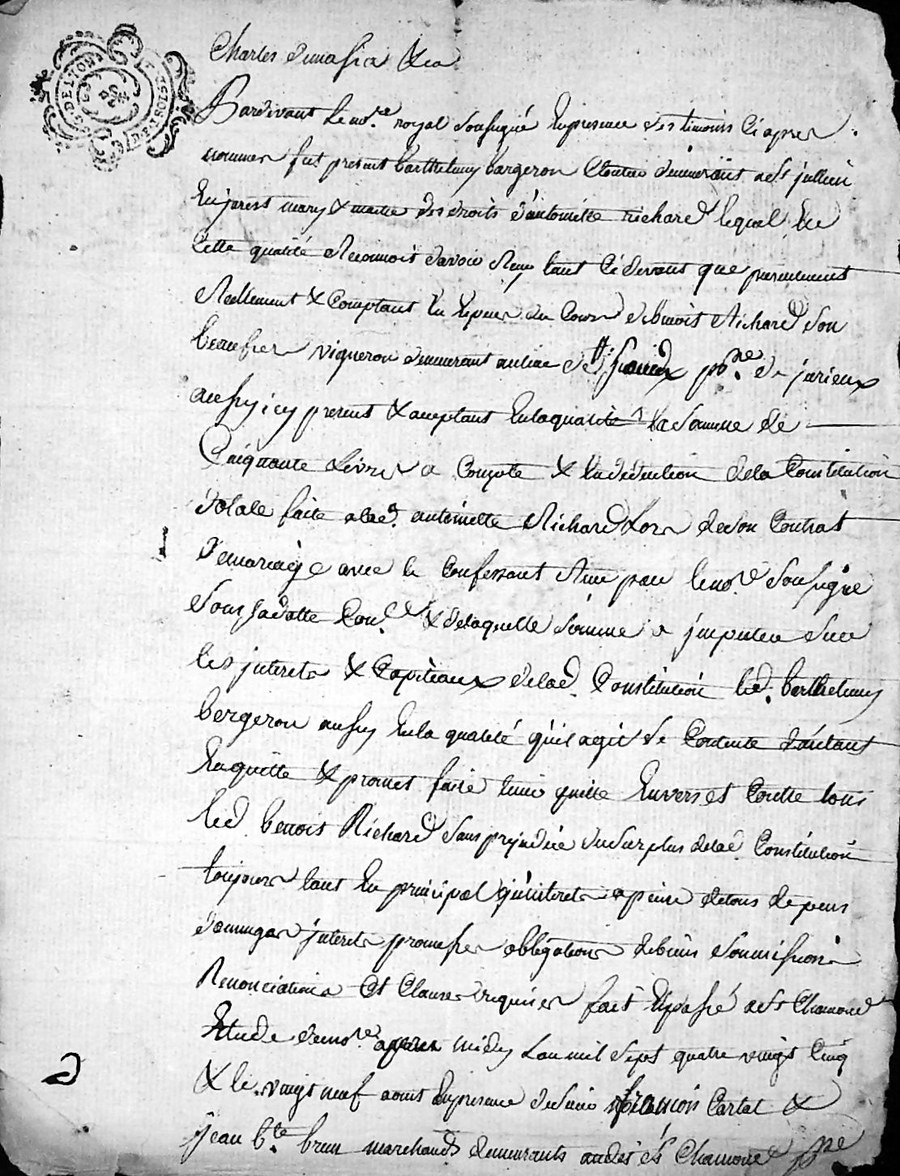 G. DE LYON
Charles dumasia &ca
Pardevant le no.re royal soussigné en presence des temoins ci apres
nommes fut present barthelemy bargeron cloutier demeurant a st jullien
en jarest mary & maitre des droits d'antoinette richard lequel en
cette qualité a reconnois d'avoir reçu tant cidevant que presentement
reellement & comptant en especes du cours de benoit Richard son
beaufrere vigneron demeurant au lieu de p.sse de jarieux
aussy icy present & acceptant en la qualité la somme de
Cinquante Livres a compte & en deduction de la Constitution
dotale faite a lad. antoinette Richard Lors de son Contrat
de mariage avec le Confessant reçu par le no.re soussigné
sous sa datte con.lé & de laquelle somme a imputer sur
les interets & Capiteaux de lad. Constitution led. barthelemy
bergeron aussy en la qualité qu'il agit se contente d'autant
en quitte & promet faire tenir quitte envers et contre tous
led. benoit Richard sans prejudice du surplus de lad. Constitution
toujours tant en principal qu'interets a peine de tous depens
domages interets promesses obligations de biens soumissions
Renonciations Et Clauses requises fait & passé a st Chamond
Etude du no.re apres midy L'an mil sept quatre vingt Cinq
& le vingt neuf aout en presence de sieurs françois Cartal &
jean b.te brun marchands demeurants audit st Chamond